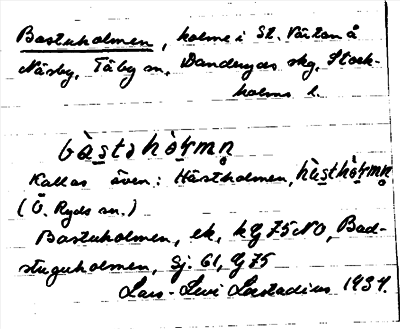 Bastuholmen, holme i St. Värtan å
Näsby, Täby sn, Danderyds skg, Stock-
holms l.
bàstəhòḷmn̥
Kallas även: Hästholmen, hàsthòḷmn̥
(Ö. Ryds sn.)
Bastuholmen, ek, hg 75 NO, Bad-
stuguholmen, Sj. 61, G 75
Lars-Levi Læstadius 1934.